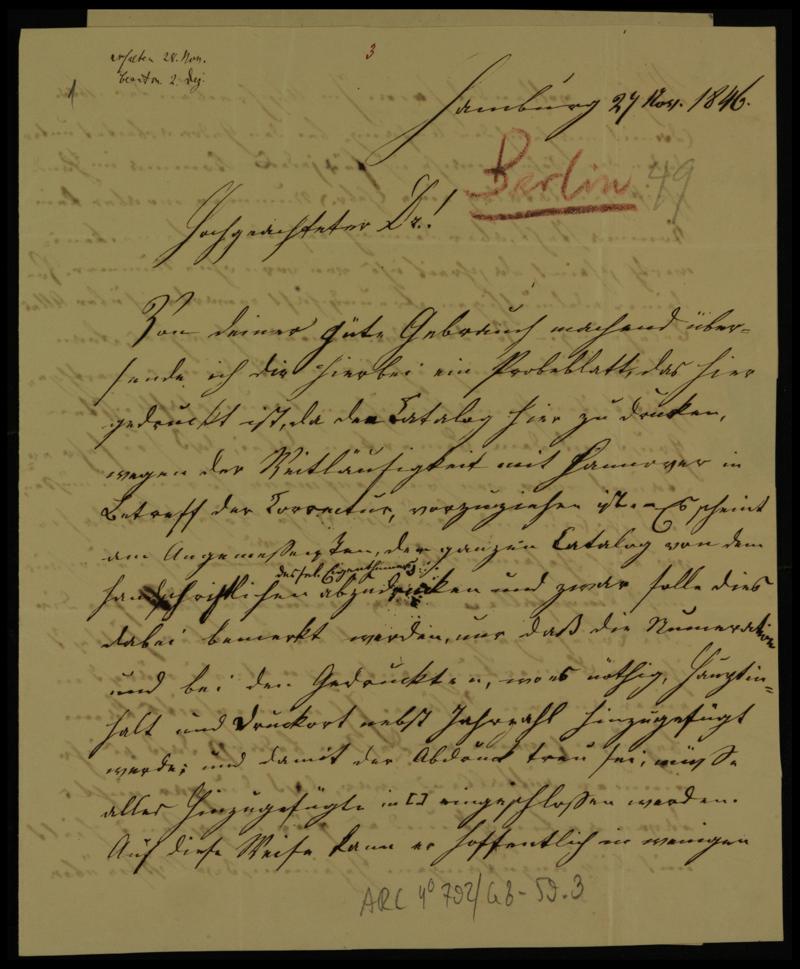 erhalten 28. Nov.
beantw. 2 Dez.
3
1
Hamburg 27 Nov. 1846.
Berlin 49
Hochgeachteter Dr!
Von deiner Güte Gebrauch machend über-
sende ich dir hierbei ein Probeblatt, das hier
gedruckt ist, da den Catalog hier zu drucken,
wegen der Weitläufigkeit mit Hannover in
Betreff der Correctur, vorzuziehen ist. Es scheint
am Angemessensten, den ganzen Catalog von dem
des sel. Eigenthümers
handschriftlichen abzudrucken und zwar solle dies
dabei bemerkt werden, nur daß die Numeration
und bei den Gedruckten, wo es nöthig, Hauptin=
halt und Druckort nebst Jahrzahl hinzugefügt
werde; und damit der Abdruck treu sei, müsse
alles Hinzugefügte in [] eingeschlossen werden.
Auf diese Weise kann er hoffentlich in wenigen
ARC 4° 792/G8-59.3